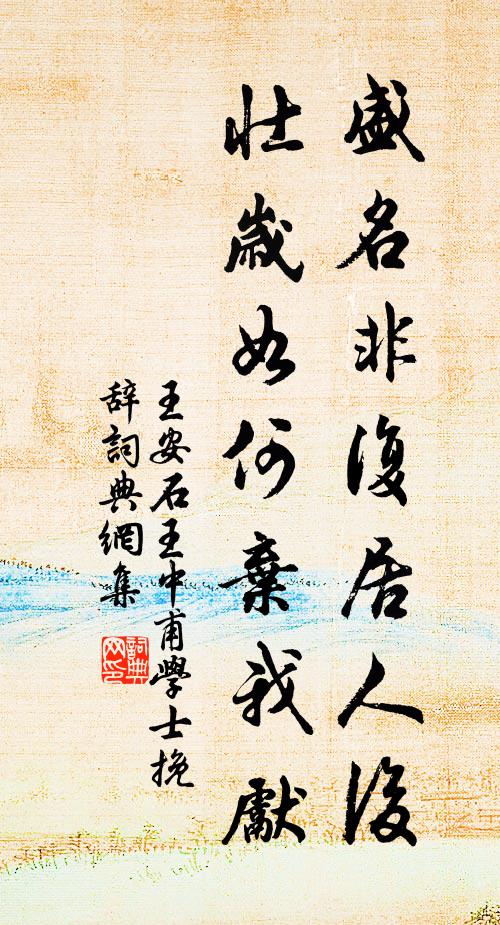 盛名非復居人後
壯歲如何棄我獻
王安石王中甫學士挽
辞詞典網集
詞典网印